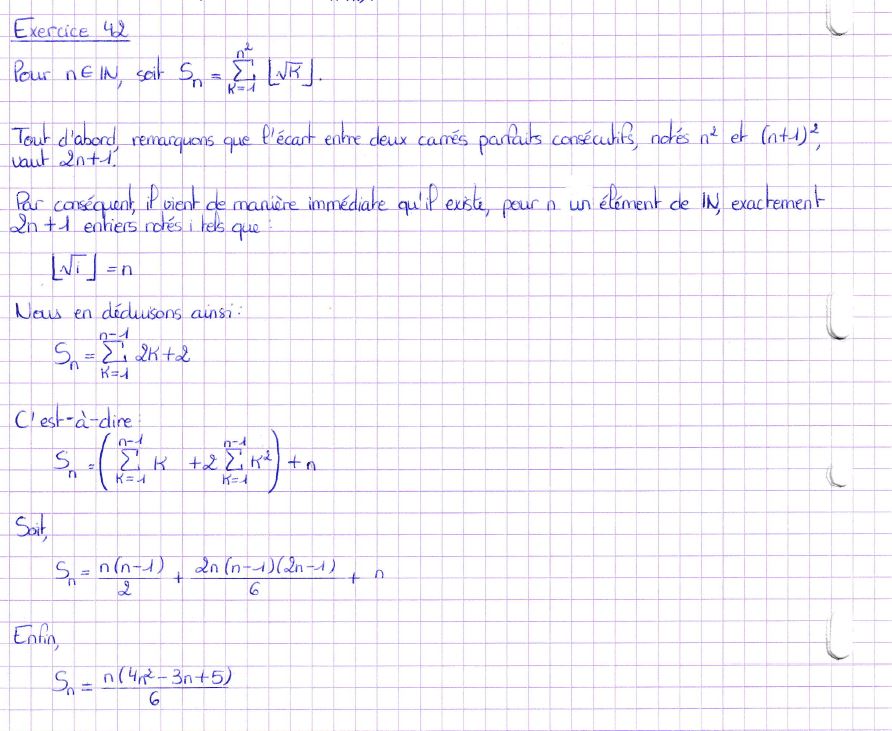 Exercice 42
Pour n ∈ IN, soit Sₙ = ∑_{K=1}^{n²} ⌊√K⌋.
Tout d'abord, remarquons que l'écart entre deux carrés parfaits consécutifs, notés n² et (n+1)²,
vaut 2n+1.
Par conséquent, il vient de manière immédiate qu'il existe, pour n un élément de IN, exactement
2n+1 entiers notés i tels que :
⌊√i⌋ = n
Nous en déduisons ainsi :
Sₙ = ∑_{K=1}^{n-1} 2K+2
C'est-à-dire :
Sₙ = (∑_{K=1}^{n-1} K + 2 ∑_{K=1}^{n-1} K²) + n
Soit,
Sₙ = n(n-1)/2 + 2n(n-1)(2n-1)/6 + n
Enfin,
Sₙ = n(4n²-3n+5)/6